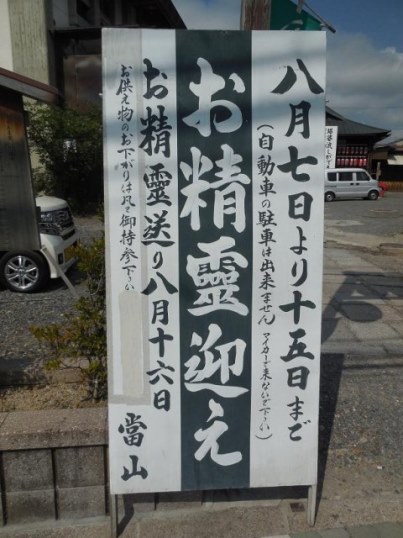 八月七日より十五日まで
(自動車の駐車は出来ません マイカーで来ないで下さい)
お精靈迎え
お精靈送り八月十六日
お供え物のお下がりは 御持参下さい
當山